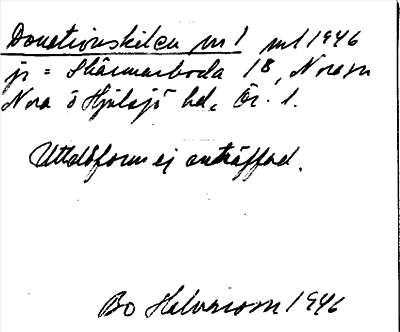 Donationskilen nr 1 ml 1946
jr = Skärmarboda 18, Nora sn
Nora o Hjulsjö hd, Ör. l.
Uttalsform ej anträffad.
Bo Halvarsson 1946